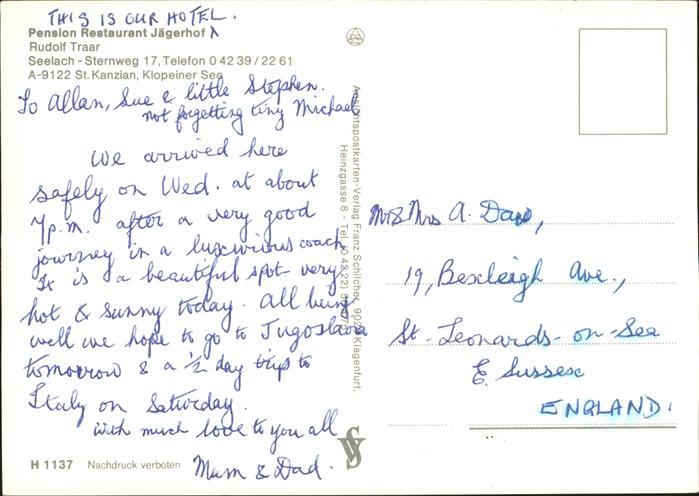 THIS IS OUR HOTEL.
Pension Restaurant Jägerhof
Rudolf Traar
Seelach - Sternweg 17, Telefon 0 42 39 / 22 61
A-9122 St. Kanzian, Klopeiner See
To Allan, Sue & little Stephen.
not forgetting tiny Michael
We arrived here
safely on Wed. at about
7p.m. after a very good
journey in a luxurious coach
It is a beautiful spot - very
hot & sunny today. All being
well we hope to go to Jugoslavia
tomorrow & a ½ day trips to
Italy on Saturday.
with much love to you all
Mum & Dad.
H 1137 Nachdruck verboten
Ansichtspostkarten-Verlag Franz Schilcher, 9020 Klagenfurt,
Heinzgasse 8 - Tel. (0 42 22)
Mr & Mrs A. Daw,
19, Bexleigh Ave.,
St-Leonards-on-Sea
E. Sussex
ENGLAND.